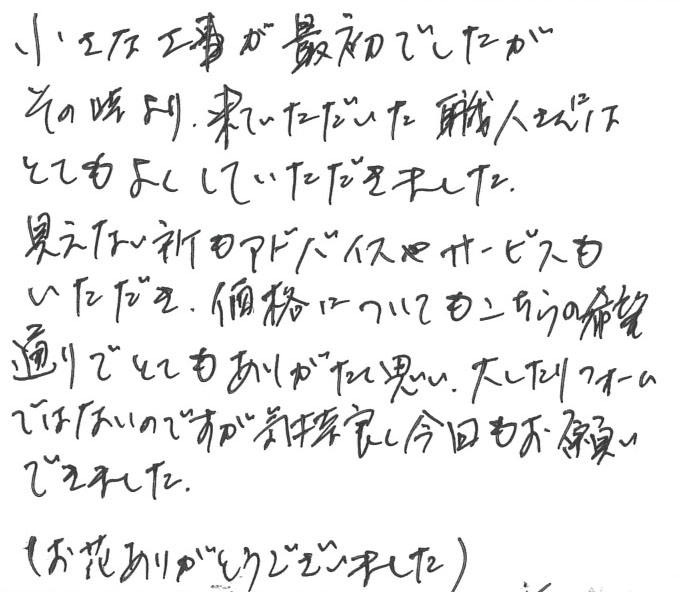 小さな工事が最初でしたが
その時より、来ていただいた職人さんには
とてもよくしていただきました。
見えない所もアドバイスやサービスも
いただき、価格についてもこちらの希望
通りでとてもありがたく思い、大したリフォーム
ではないのですが気持良く今回もお願い
できました。
(お花ありがとうございました)